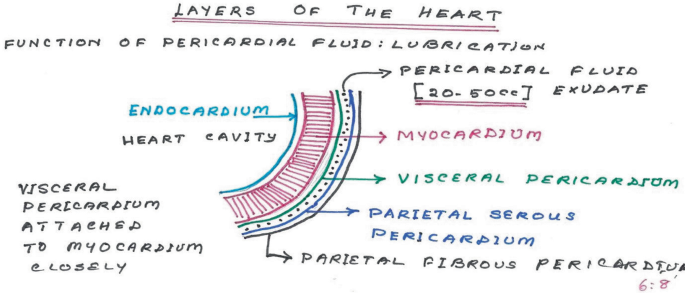 LAYERS OF THE HEART
FUNCTION OF PERICARDIAL FLUID: LUBRICATION
PERICARDIAL FLUID
[20-50cc] EXUDATE
ENDOCARDIUM
HEART CAVITY
MYOCARDIUM
VISCERAL PERICARDIUM
VISCERAL
PERICARDIUM
ATTACHED
TO MYOCARDIUM
CLOSELY
PARIETAL SEROUS
PERICARDIUM
PARIETAL FIBROUS PERICARDIUM
6:8